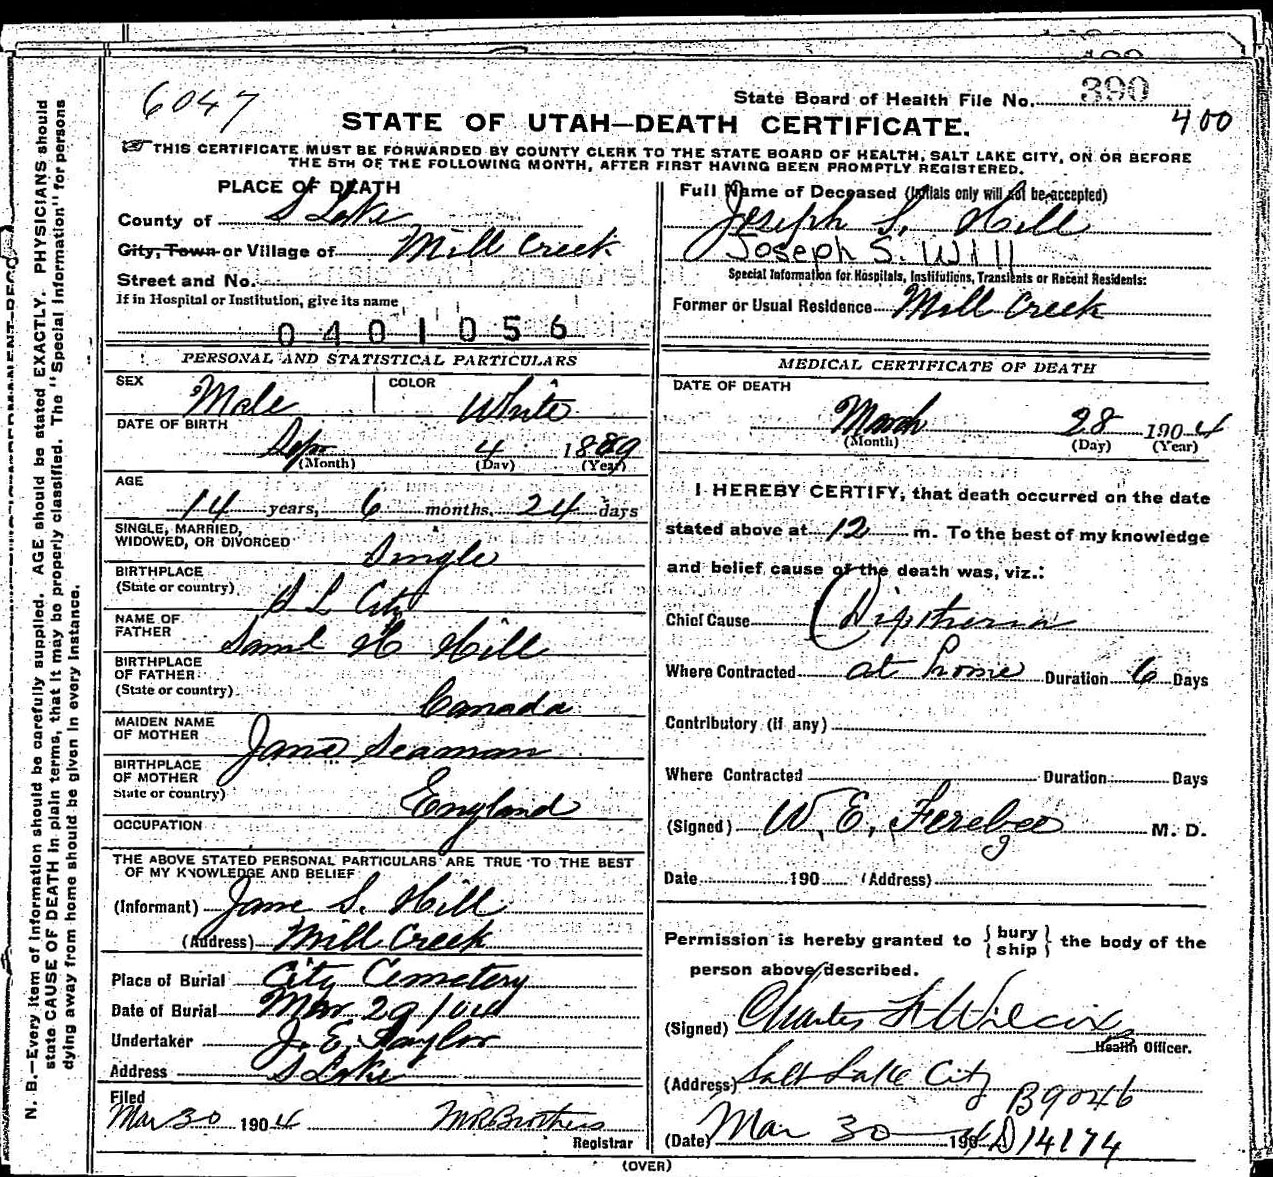 6047
State Board of Health File No. 390
400
STATE OF UTAH—DEATH CERTIFICATE.
THIS CERTIFICATE MUST BE FORWARDED BY COUNTY CLERK TO THE STATE BOARD OF HEALTH, SALT LAKE CITY, ON OR BEFORE
THE 5TH OF THE FOLLOWING MONTH, AFTER FIRST HAVING BEEN PROMPTLY REGISTERED.
N. B.—Every item of information should be carefully supplied. AGE should be stated EXACTLY. PHYSICIANS should
state CAUSE OF DEATH in plain terms, that it may be properly classified. The "Special Information" for persons
dying away from home should be given in every instance.
PLACE OF DEATH
County of S Lake
City, Town or Village of Mill Creek
Street and No.
If in Hospital or Institution, give its name
0401056
PERSONAL AND STATISTICAL PARTICULARS
SEX Male COLOR White
DATE OF BIRTH
Sep 4 1889
(Month) (Day) (Year)
AGE
14 years, 6 months, 24 days
SINGLE, MARRIED,
WIDOWED, OR DIVORCED Single
BIRTHPLACE
(State or country) S L City
NAME OF
FATHER Saml H Hill
BIRTHPLACE
OF FATHER
(State or country) Canada
MAIDEN NAME
OF MOTHER Jane Seaman
BIRTHPLACE
OF MOTHER
State or country) England
OCCUPATION
THE ABOVE STATED PERSONAL PARTICULARS ARE TRUE TO THE BEST
OF MY KNOWLEDGE AND BELIEF
(Informant) Jane S. Hill
(Address) Mill Creek
Place of Burial City Cemetery
Date of Burial Mar 29 1904
Undertaker J. E. Taylor
Address S Lake
Filed
Mar 30 1904 Brothers
Registrar
Full Name of Deceased (Initials only will not be accepted)
Joseph S. Hill
Joseph S. Will
Special Information for Hospitals, Institutions, Transients or Recent Residents:
Former or Usual Residence Mill Creek
MEDICAL CERTIFICATE OF DEATH
DATE OF DEATH
March 28 1904
(Month) (Day) (Year)
I HEREBY CERTIFY, that death occurred on the date
stated above at 12 m. To the best of my knowledge
and belief cause of the death was, viz.:
Chief Cause Diptheria
Where Contracted at home Duration 6 Days
Contributory (if any)
Where Contracted Duration Days
(Signed) W. E. Ferebee M. D.
Date 190 (Address)
Permission is hereby granted to { bury
ship } the body of the
person above described.
(Signed) Charles F Wilcox
Health Officer.
(Address) Salt Lake City
B9046
(Date) Mar 30 1904 D14174
(OVER)